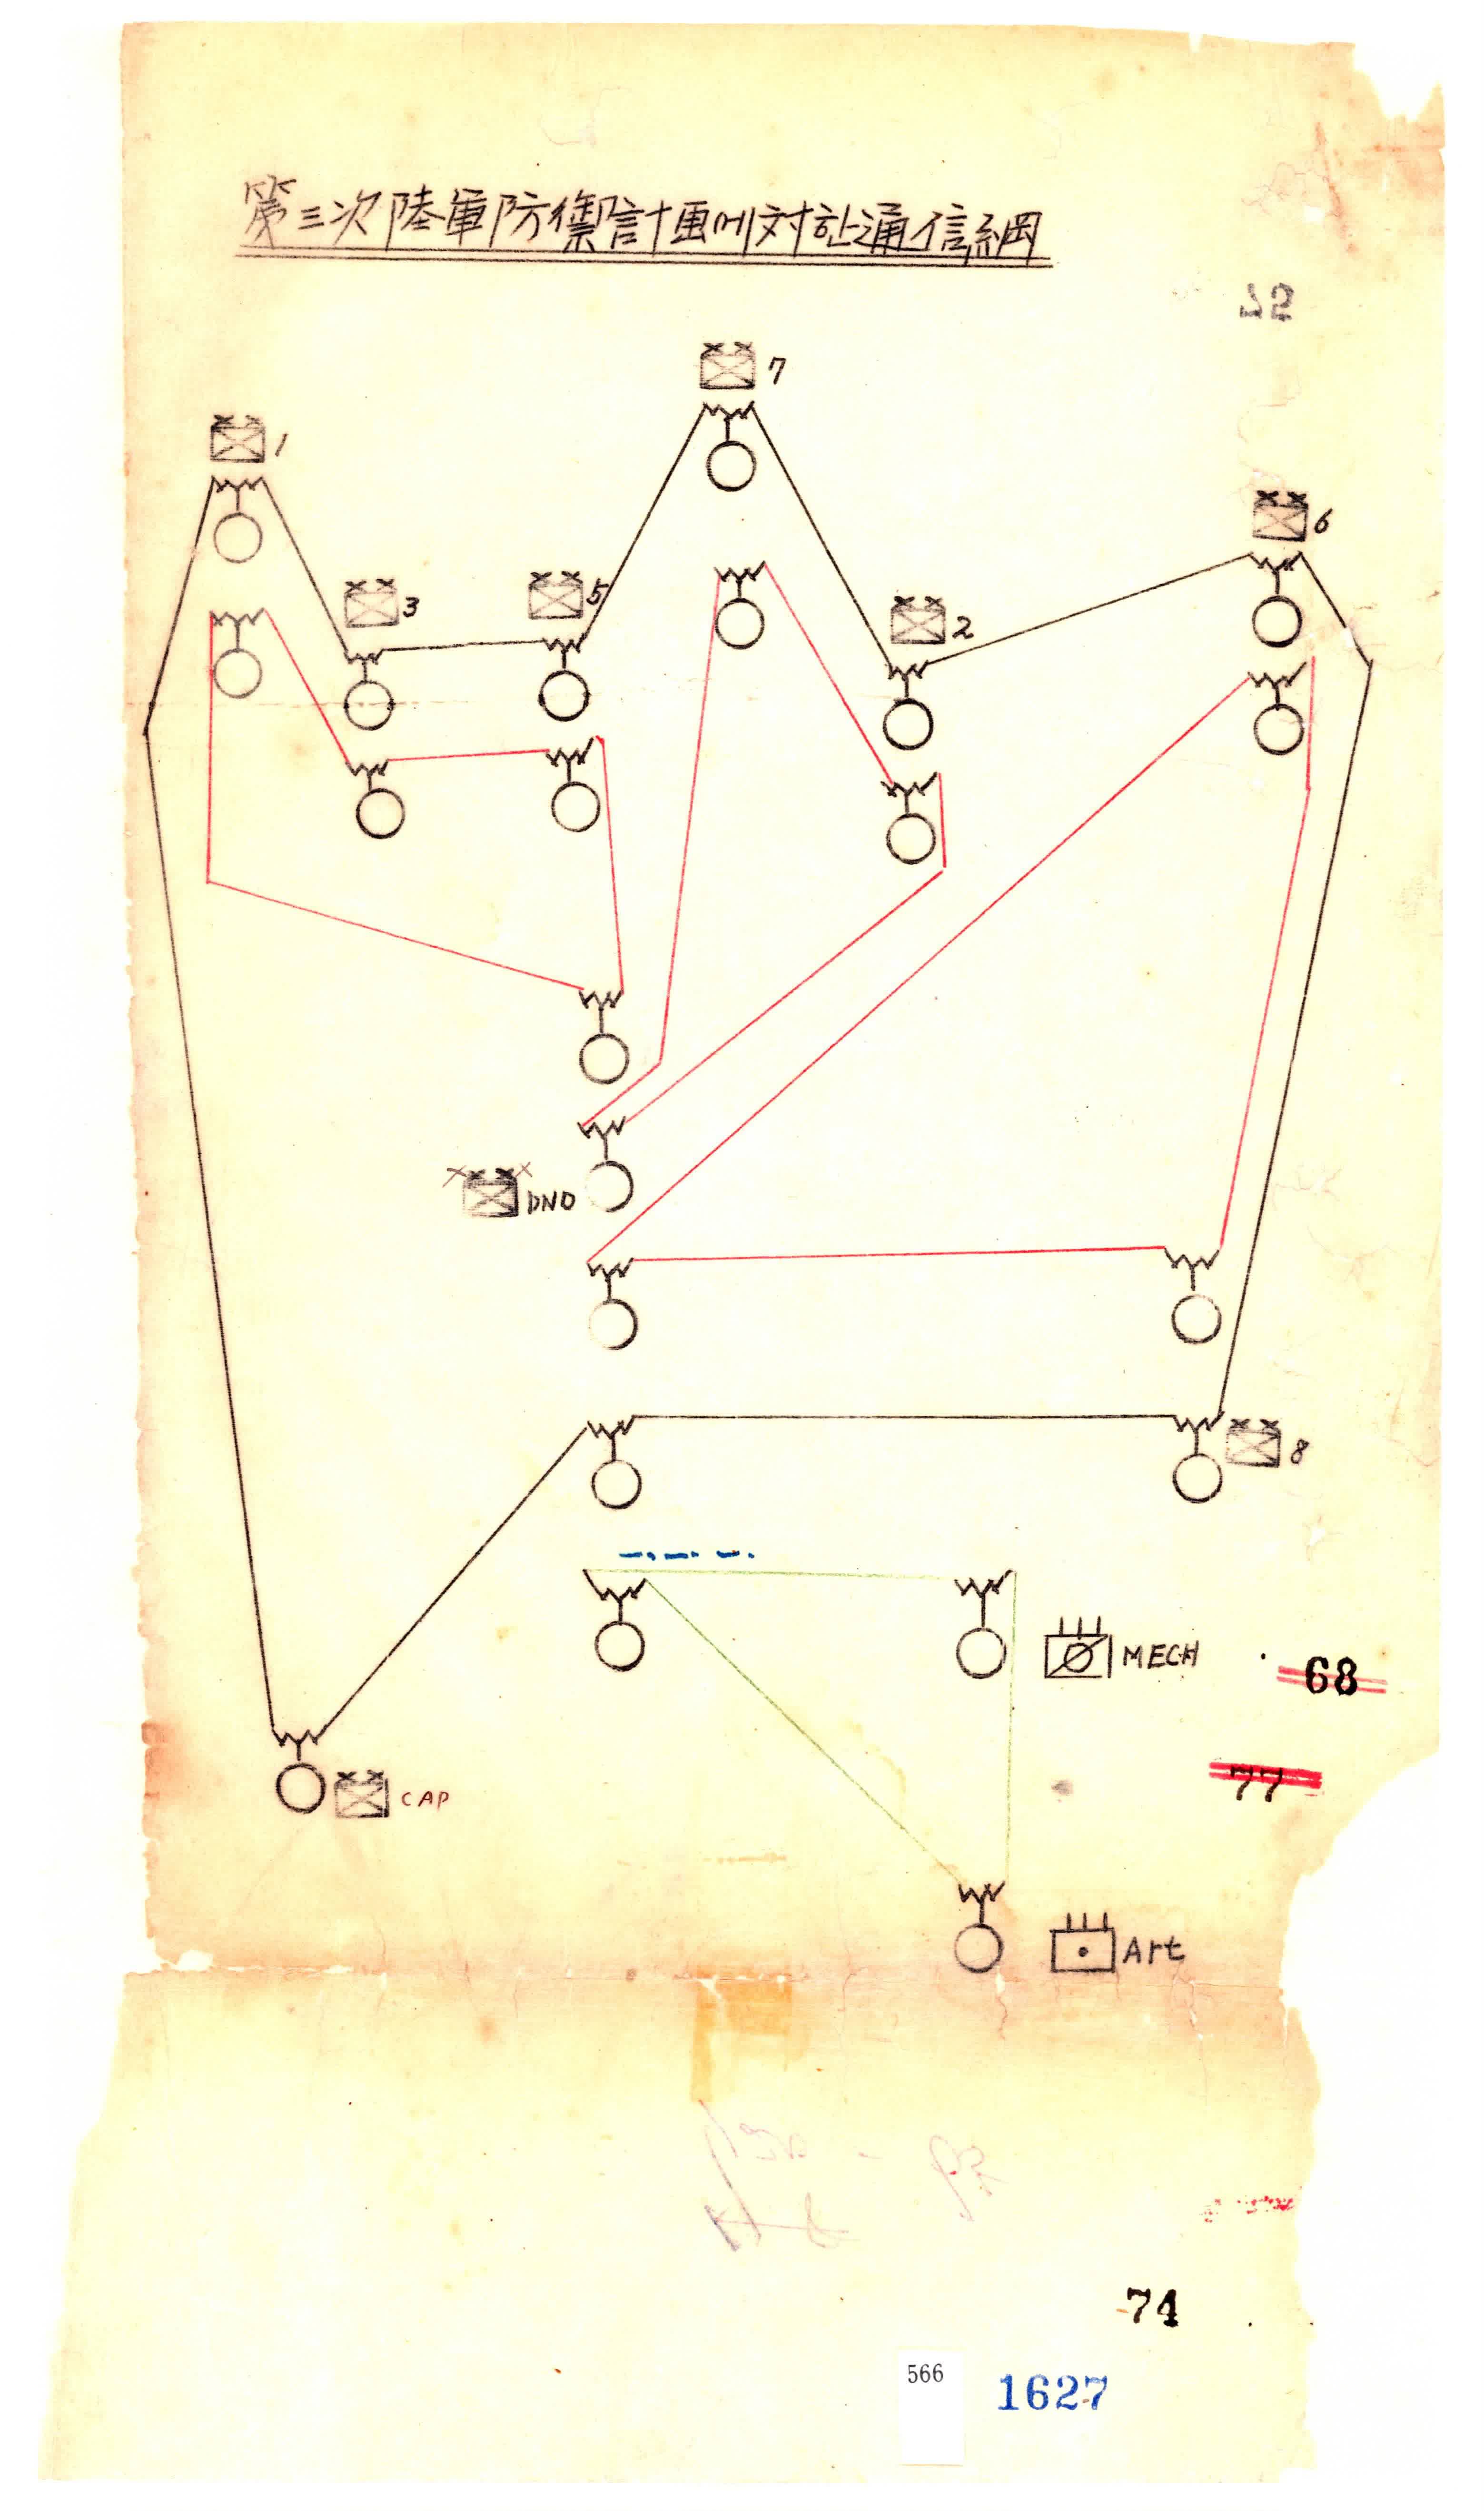 第三次陸軍防禦計画에対한通信網
52
7
1
6
3
5
2
DNO
8
MECH
68
77
CAP
Art
74
566
1627